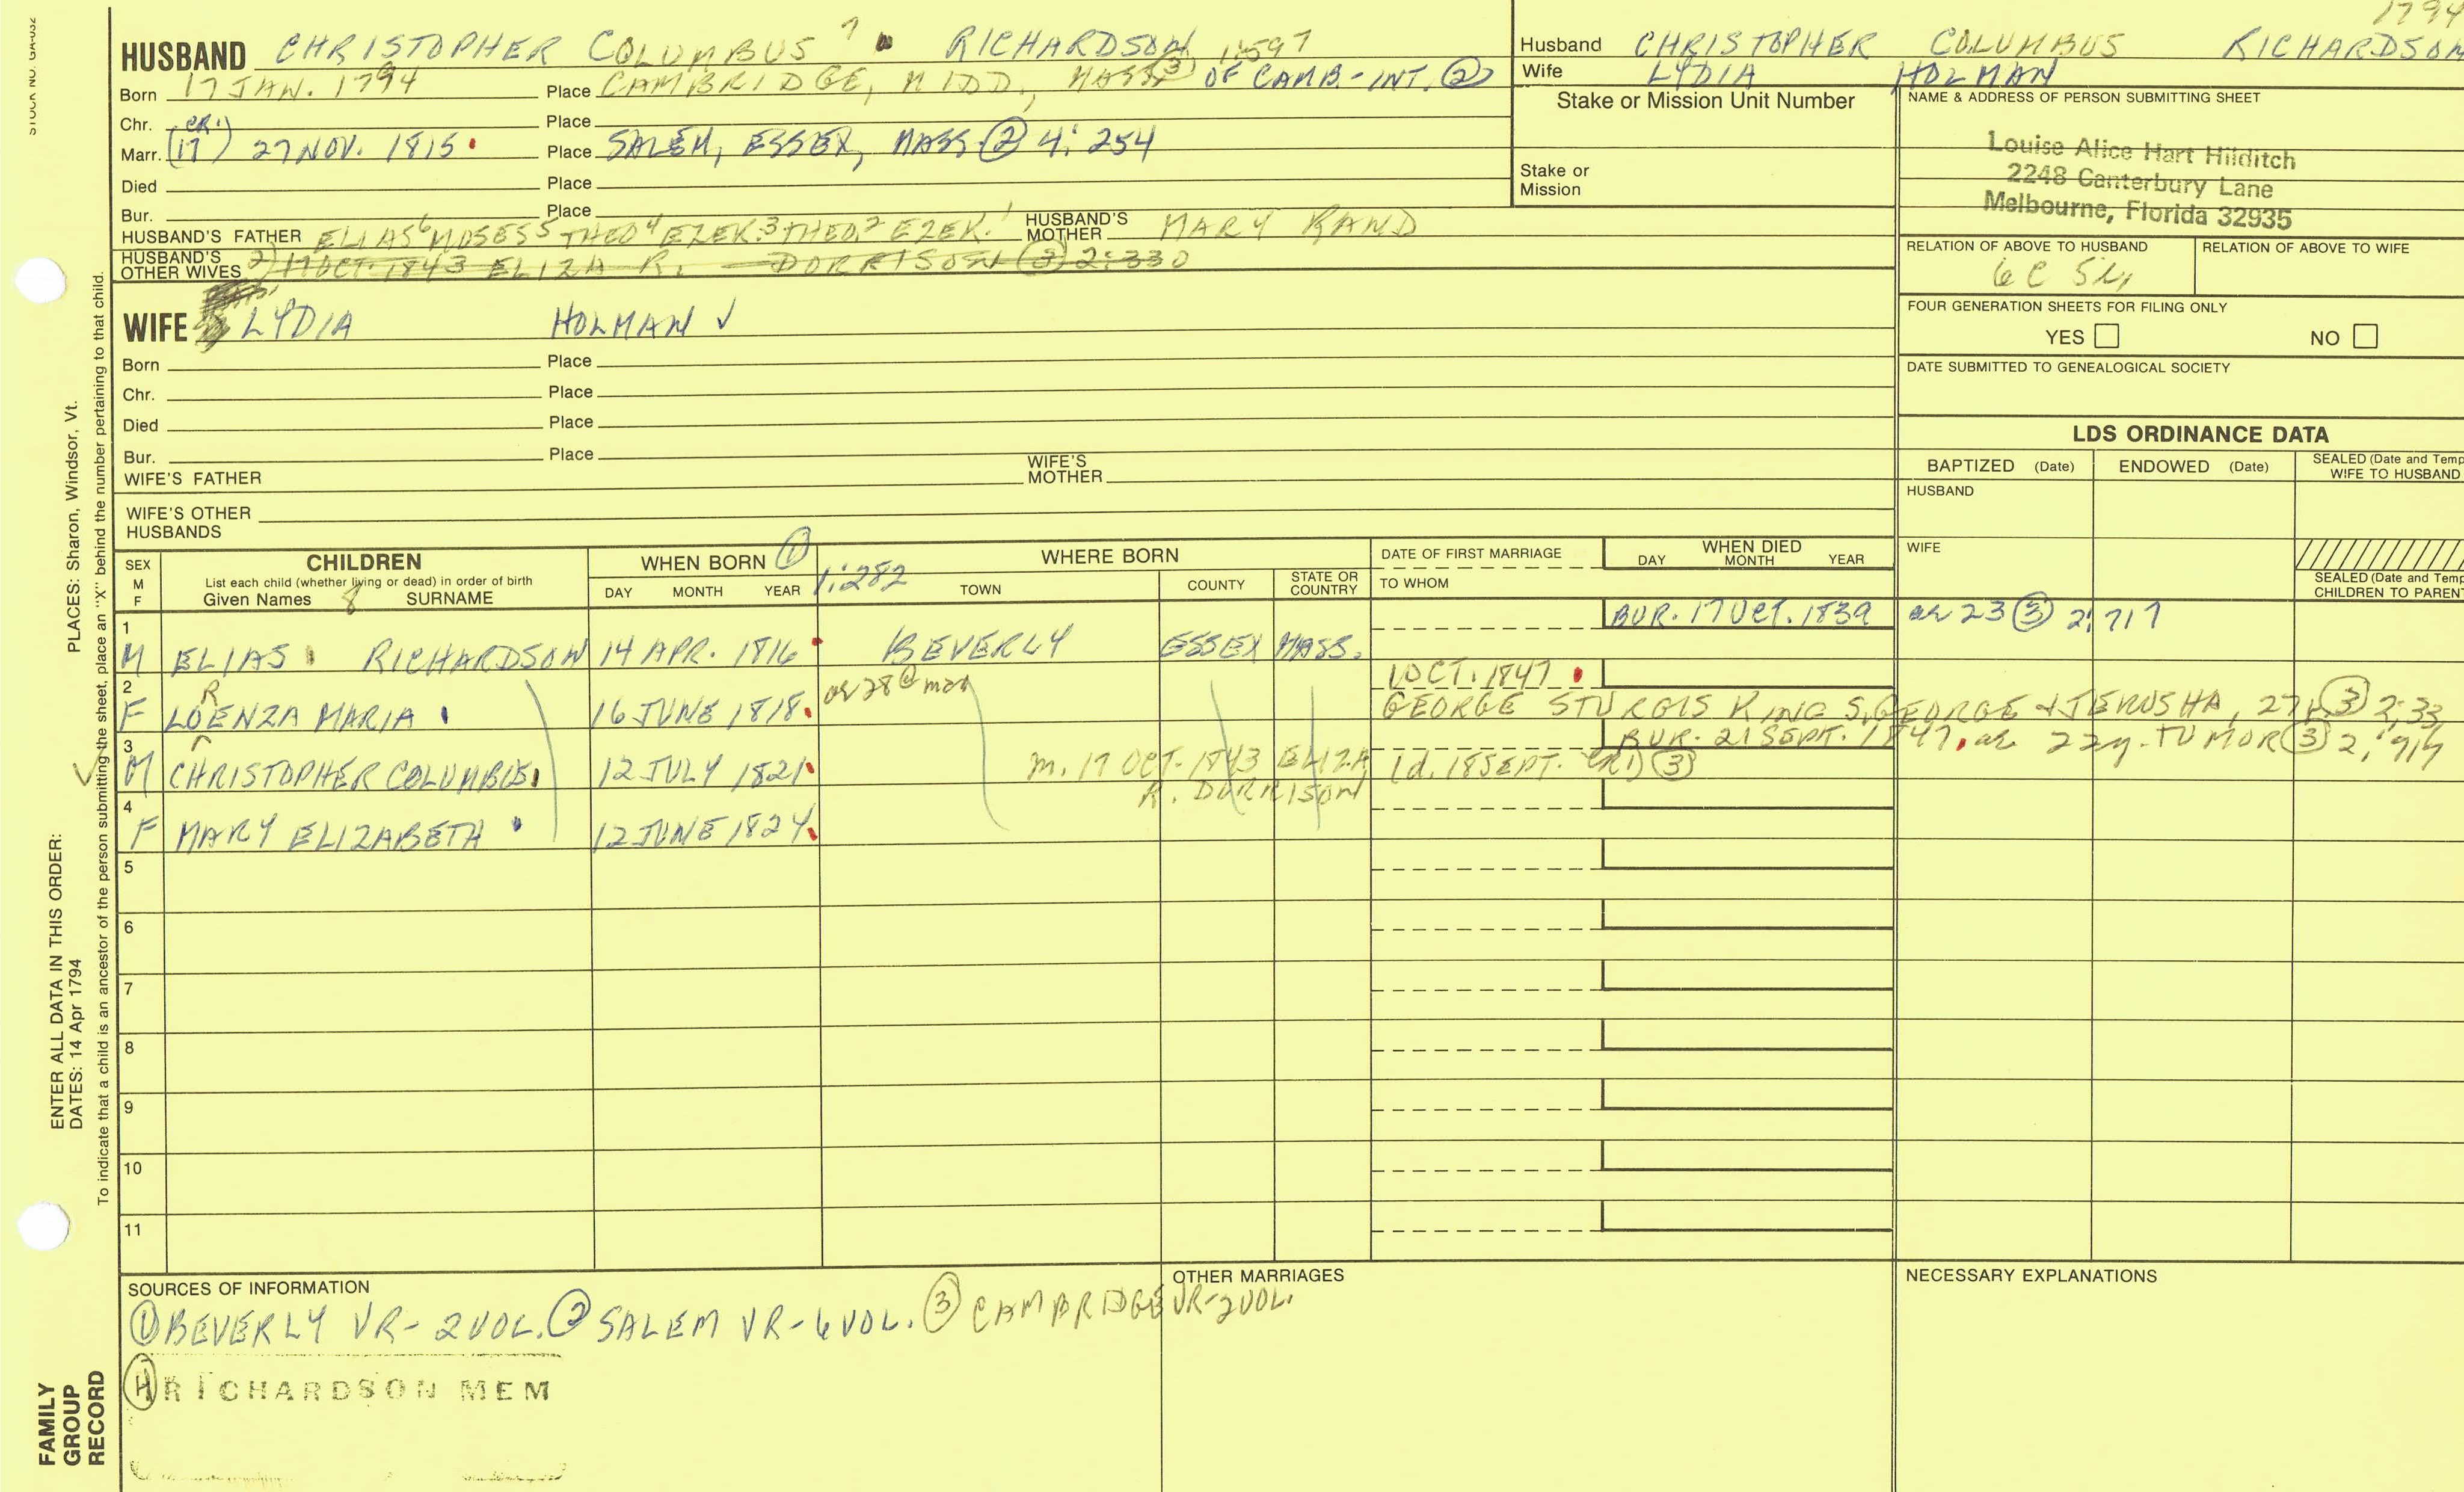 1794
HUSBAND CHRISTOPHER COLUMBUS 7 RICHARDSON 1:597
Born 17 JAN. 1794 Place CAMBRIDGE, MIDD., MASS (3) OF CAMB-INT. (2)
Chr. Place
Marr. (17 CR.1) 27 NOV. 1815 Place SALEM, ESSEX, MASS (2) 4:254
Died Place
Bur. Place
HUSBAND'S FATHER ELIAS6 MOSES5 THEO4 EZEK.3 THEO.2 EZEK.1 HUSBAND'S MOTHER MARY RAND
HUSBAND'S OTHER WIVES 2) 17 OCT. 1843 ELIZA R. DORRISON (3) 2:330
WIFE LYDIA HOLMAN ✓
Born Place
Chr. Place
Died Place
Bur. Place
WIFE'S FATHER WIFE'S MOTHER
WIFE'S OTHER HUSBANDS
Husband CHRISTOPHER COLUMBUS RICHARDSON
Wife LYDIA HOLMAN
Stake or Mission Unit Number
Stake or Mission
NAME & ADDRESS OF PERSON SUBMITTING SHEET
Louise Alice Hart Hilditch
2248 Canterbury Lane
Melbourne, Florida 32935
RELATION OF ABOVE TO HUSBAND RELATION OF ABOVE TO WIFE
6C 5
FOUR GENERATION SHEETS FOR FILING ONLY
YES NO
DATE SUBMITTED TO GENEALOGICAL SOCIETY
LDS ORDINANCE DATA
BAPTIZED (Date) ENDOWED (Date) SEALED (Date and Temp
WIFE TO HUSBAND
HUSBAND
WIFE
SEALED (Date and Temp
CHILDREN TO PAREN
SEX M F
CHILDREN
List each child (whether living or dead) in order of birth
Given Names 8 SURNAME
WHEN BORN (1) 1:282
DAY MONTH YEAR
WHERE BORN
TOWN COUNTY STATE OR COUNTRY
DATE OF FIRST MARRIAGE
TO WHOM
WHEN DIED
DAY MONTH YEAR
1 BUR. 17 OCT. 1839 ae 23 (3) 2:717
M ELIAS RICHARDSON 14 APR. 1816 BEVERLY ESSEX MASS.
2 R ae 28 @ mar 1 OCT. 1847
F LOENZA MARIA 16 JUNE 1818 GEORGE STURGIS KING S. GEORGE & JERUSHA, 27 (3) 2:33
3 BUR. 21 SEPT. 1847, ae 22y. TUMOR (3) 2:714
✓ M CHRISTOPHER COLUMBUS 12 JULY 1821 m. 17 OCT. 1843 ELIZA R. DORRISON (d. 18 SEPT. CR1) (3)
4
F MARY ELIZABETH 12 JUNE 1824
5
6
7
8
9
10
11
SOURCES OF INFORMATION
(1) BEVERLY VR- 2 VOL. (2) SALEM VR-6 VOL. (3) CAMBRIDGE VR-2 VOL.
(4) RICHARDSON MEM
OTHER MARRIAGES
NECESSARY EXPLANATIONS
STOCK NO. GA-032
PLACES: Sharon, Windsor, Vt.
ENTER ALL DATA IN THIS ORDER:
DATES: 14 Apr 1794
To indicate that a child is an ancestor of the person submitting the sheet, place an "X" behind the number pertaining to that child.
FAMILY
GROUP
RECORD